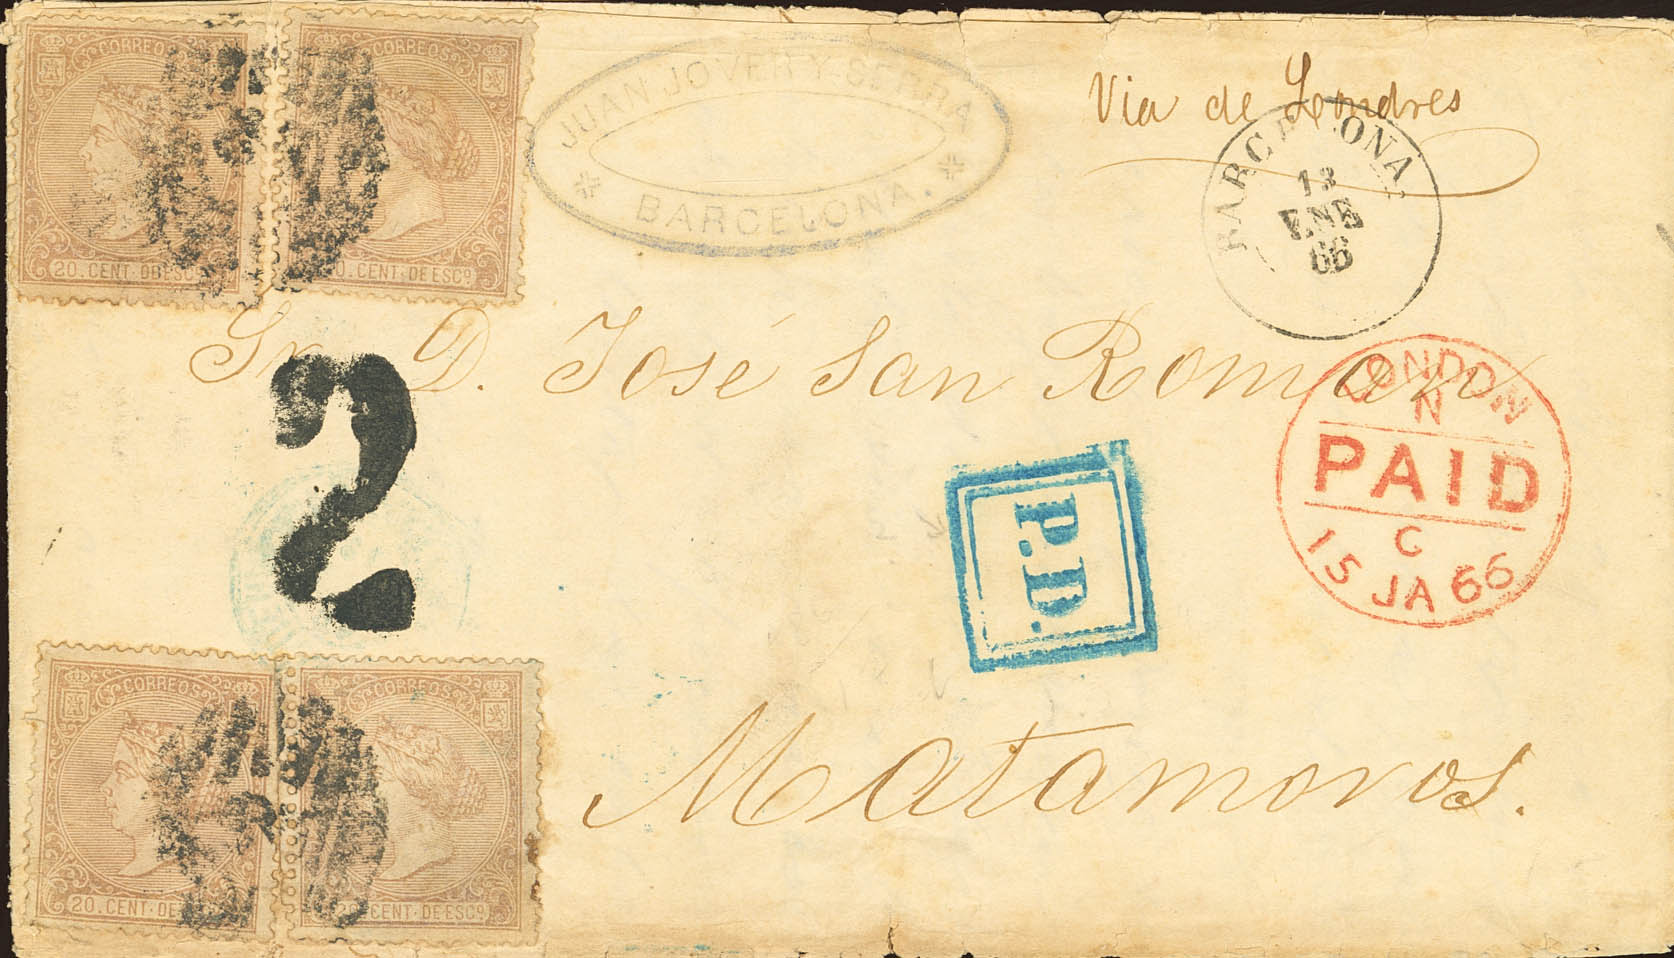 CORREOS
20. CENT. DE ESCº
CORREOS
20. CENT. DE ESCº
JUAN JOVER Y SERRA
BARCELONA.
Via de Londres
BARCELONA.
13
ENE
66
Sr. D. José San Roman
2
P.D.
LONDON
N
PAID
C
15 JA 66
Matamoros.
CORREOS
20. CENT. DE
CORREOS
20. CENT. DE ESCº